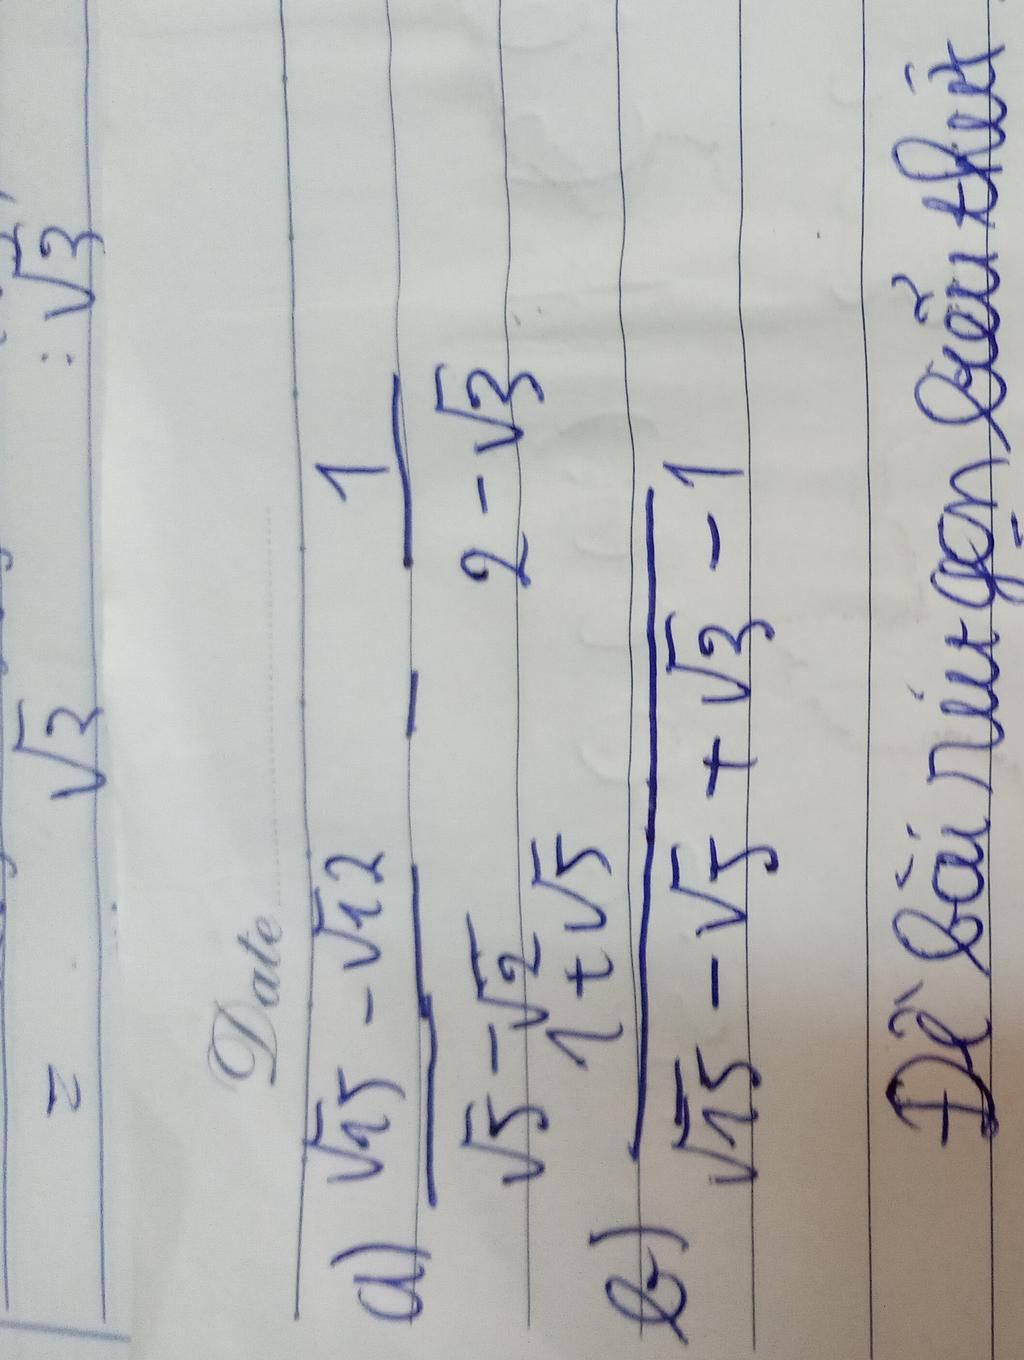 = √3 : √3
Date
a) √15 - √12 / √5 - √2 - 1 / 2 - √3
b) 1 + √5 / √15 - √5 + √3 - 1
Đề bài rút gọn biểu thức